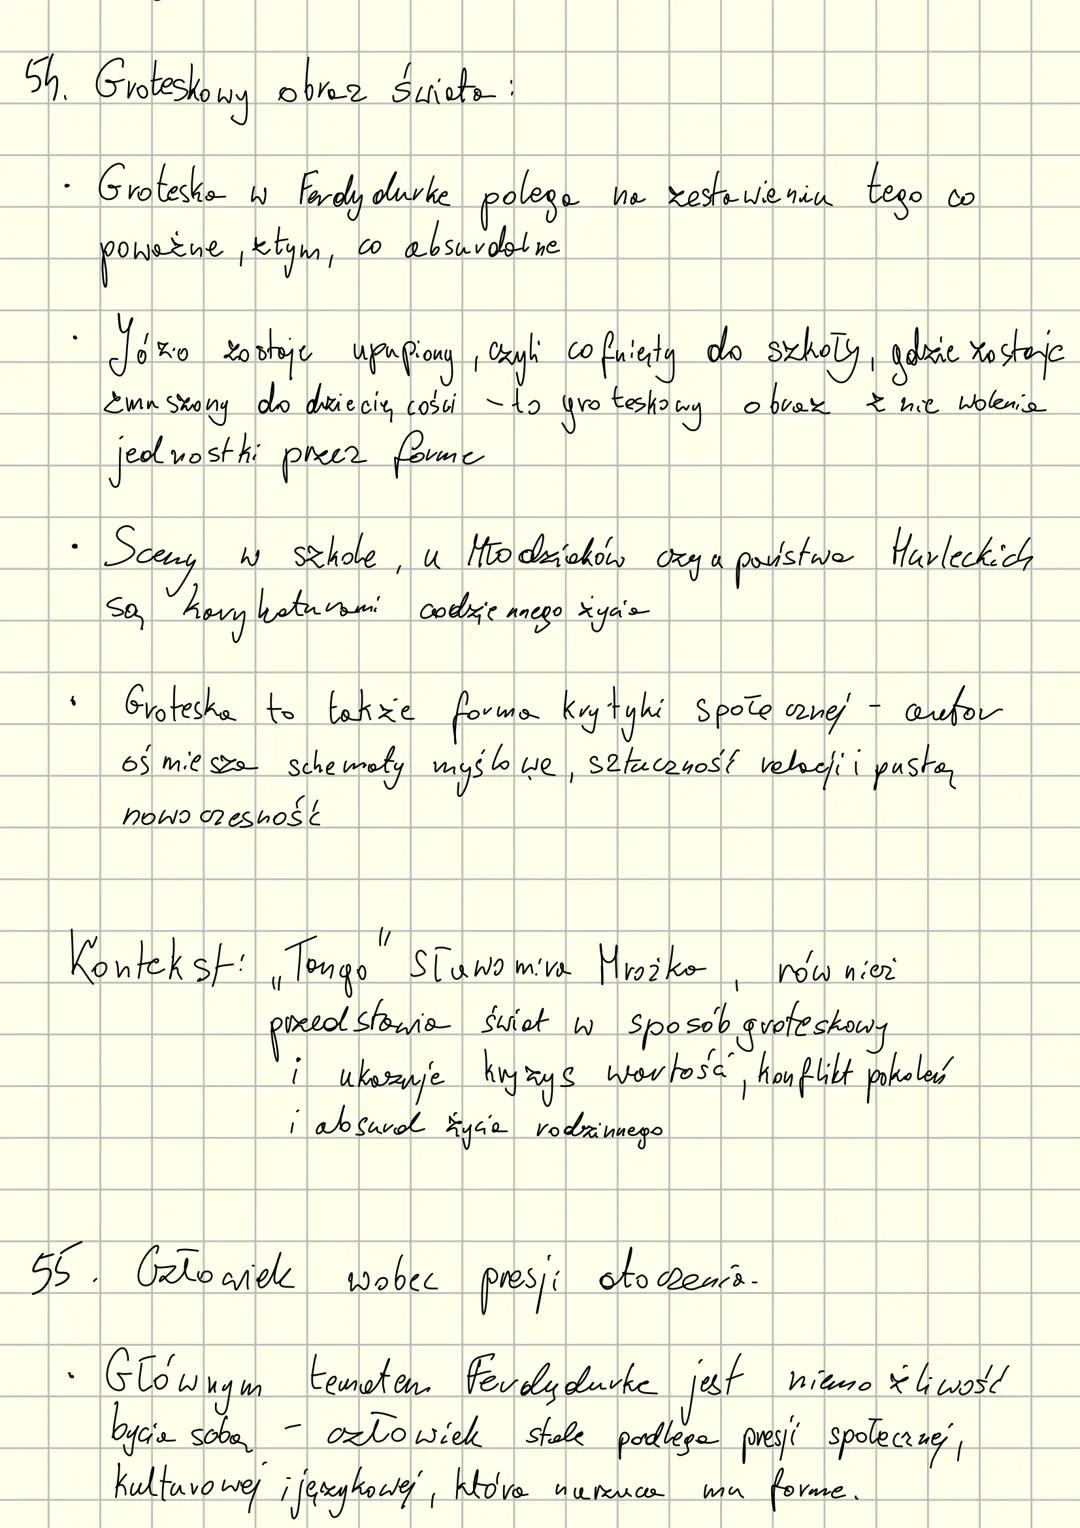 54. Groteskowy obraz świata:
· Groteska w Ferdydurke polega na zestawieniu tego co
poważne, z tym, co absurdalne
· Józio zostaje upupiony, czyli cofnięty do szkoły, gdzie zostaje
zmuszony do dziecięcości - to groteskowy obraz zniewolenia
jednostki przez formę
· Sceny w szkole, u Młodziaków czy u państwa Hurleckich
są karykaturami codziennego życia
· Groteska to także forma krytyki społecznej - autor
ośmiesza schematy myślowe, sztuczność relacji i pustą
nowoczesność
Kontekst: „Tango" Sławomira Mrożka, również
przedstawia świat w sposób groteskowy
i ukazuje kryzys wartość, konflikt pokoleń
i absurd życia rodzinnego
55. Człowiek wobec presji otoczenia.
· Głównym tematem Ferdydurke jest niemożliwość
bycia sobą - człowiek stale podlega presji społecznej,
kulturowej i językowej, która narzuca mu formę.